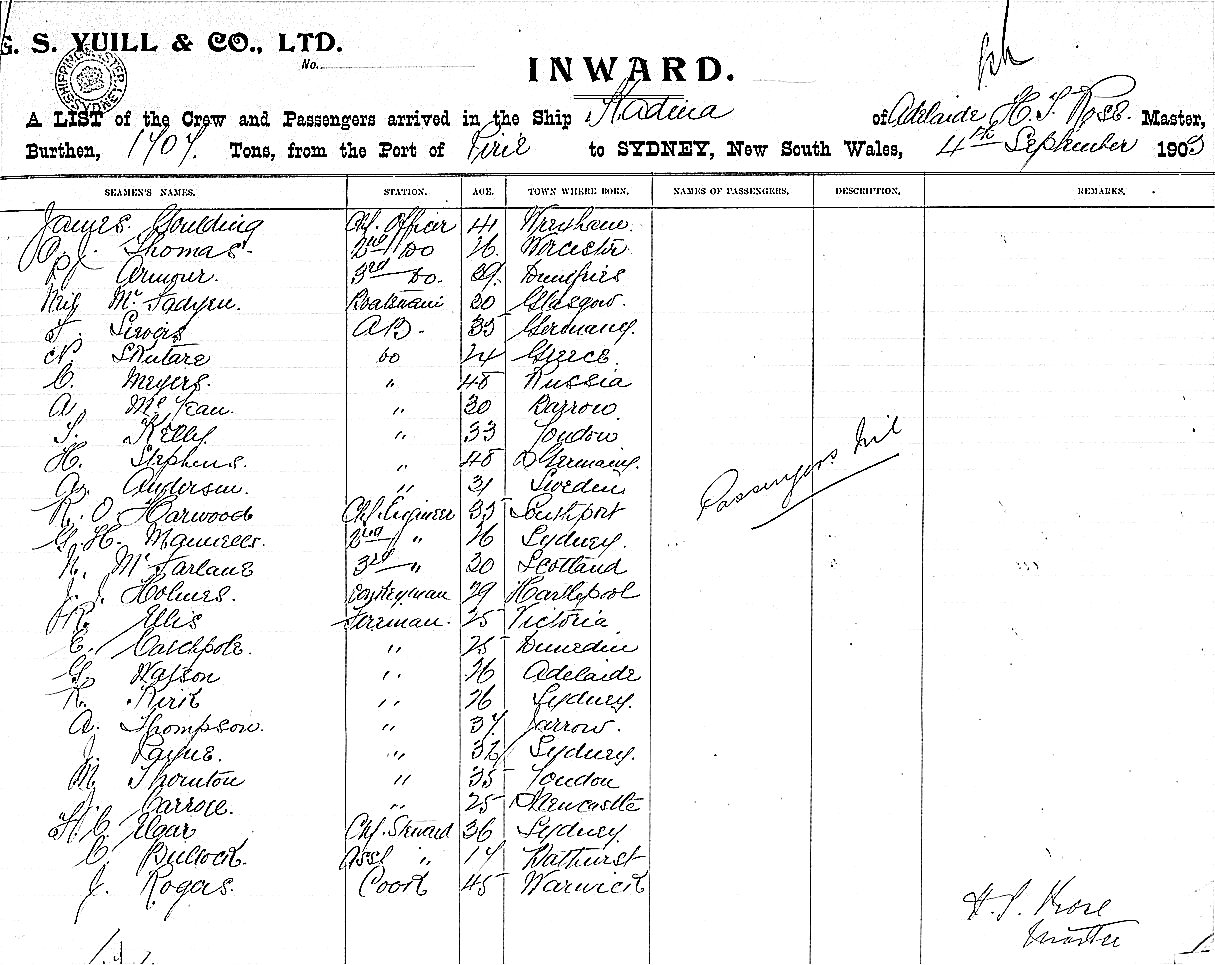 G. S. YUILL & CO., LTD.
No.
INWARD.
A LIST of the Crew and Passengers arrived in the Ship of Adelaide H. S. Rose Master,
Burthen, 1707 Tons, from the Port of Pirie to SYDNEY, New South Wales, 4th September 1903
SEAMEN'S NAMES. STATION. AGE. TOWN WHERE BORN. NAMES OF PASSENGERS. DESCRIPTION. REMARKS.
James Goulding Chf. Officer 41 Wrexham.
Thomas 2nd Do 26 Worcester
Armour. 3rd Do. 29 Dumfries
Neil McFadyen. 30 Glasgow.
AB. 35 Germany.
N. Skutare do 24 Greece
C. Meyers. " 48 Russia
A. McLean. " 30 Barrow
Kelly " 33 London
H. Stephens. " 48 Germany.
Anderson. " 31 Sweden
R. O. Harwood Chf. Engineer 35 Southport
G. H. 2nd " 26 Sydney.
N. McFarlane 3rd " 30 Scotland
J. J. Holmes. Donkeyman 29 Hartlepool
R. Ellis Fireman. 25 Victoria
E. Catchpole. " 25 Dunedin
G. Watson " 26 Adelaide
R. Kirk " 26 Sydney.
A. Thompson. " 37 Jarrow.
J. Payne. " 32 Sydney.
M. Thornton " 35 London
Carroll. " 25 Newcastle
H. C. Elgar Chf. Steward 36 Sydney
C. Bullock. Asst " 17 Bathurst
J. Rogers. Cook 45 Warwick
Passengers Nil
H. S. Rose
Master